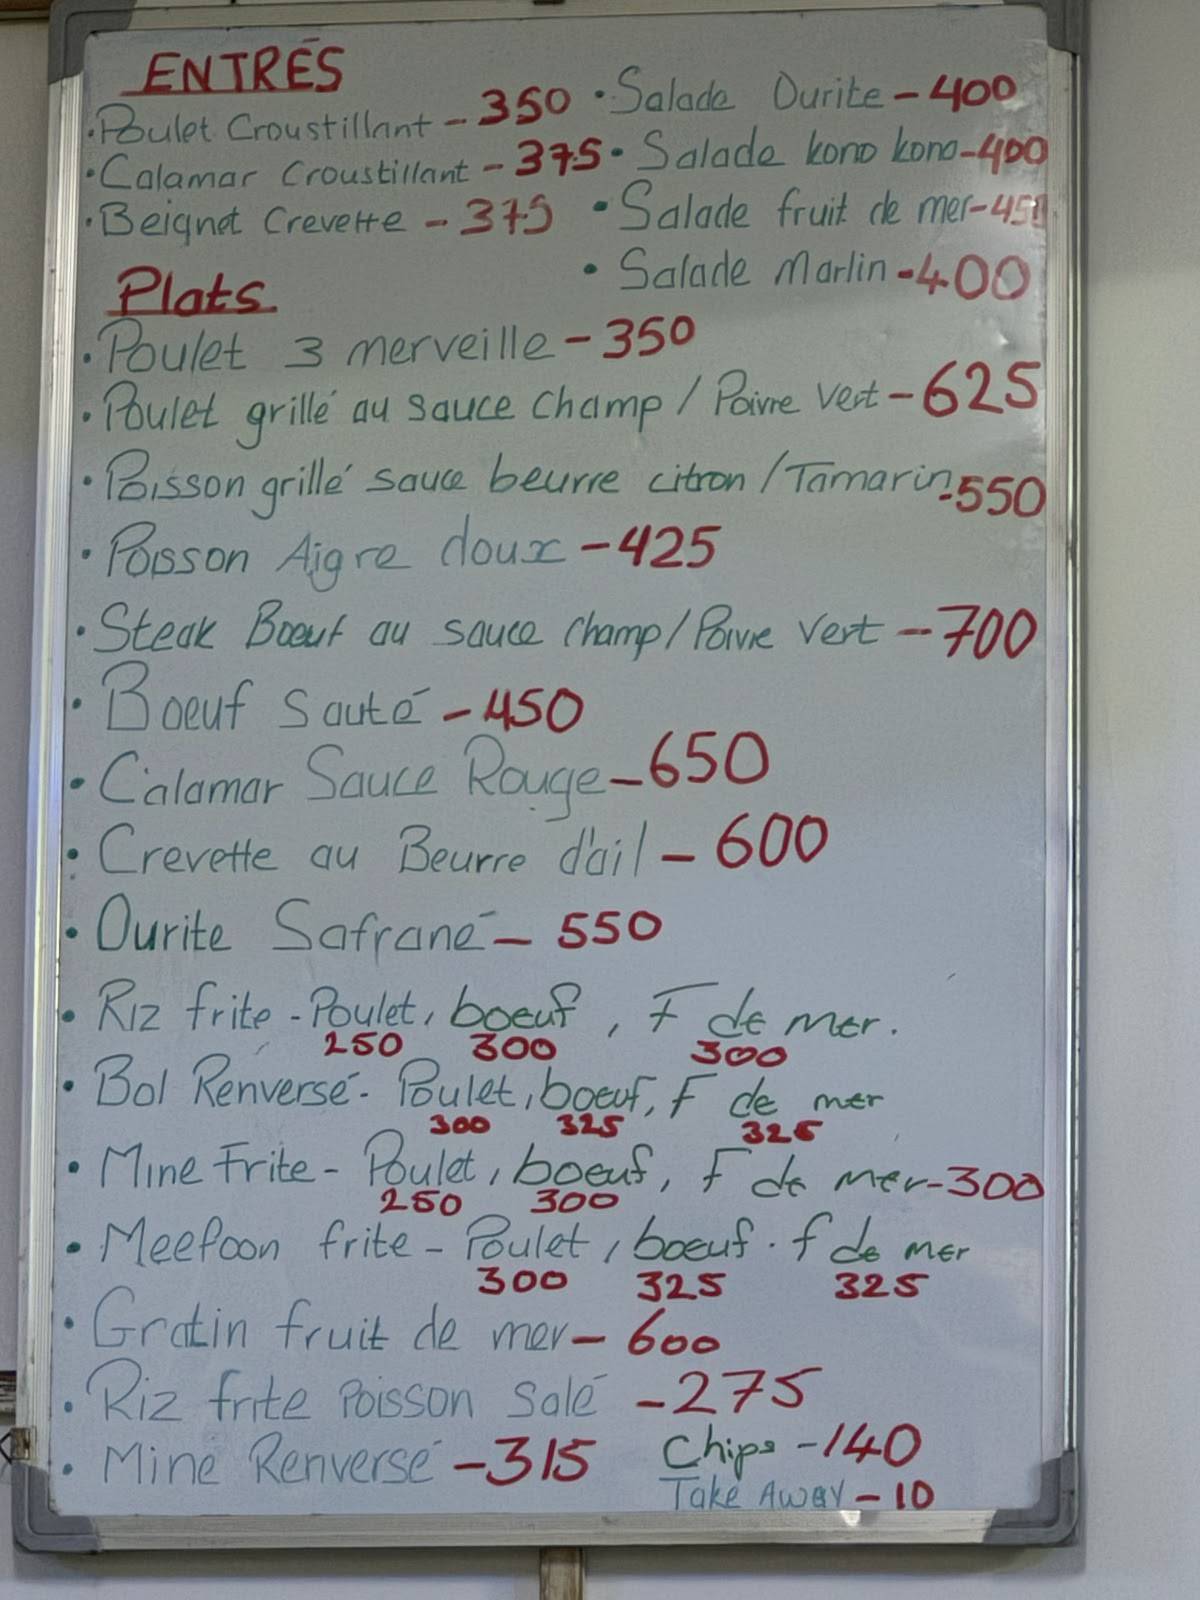 ENTRÉS
• Poulet Croustillant - 350
• Calamar Croustillant - 375
• Beignet Crevette - 375
• Salade Ourite - 400
• Salade kono kono - 400
• Salade fruit de mer - 450
• Salade Marlin - 400
Plats
• Poulet 3 merveille - 350
• Poulet grillé au sauce champ / Poivre Vert - 625
• Poisson grillé sauce beurre citron / Tamarin - 550
• Poisson Aigre doux - 425
• Steak Boeuf au sauce champ / Poivre Vert - 700
• Boeuf Sauté - 450
• Calamar Sauce Rouge - 650
• Crevette au Beurre d'ail - 600
• Ourite Safrané - 550
• Riz frite - Poulet, boeuf, F de mer.
250 300 300
• Bol Renversé - Poulet, boeuf, F de mer
300 325 325
• Mine Frite - Poulet, boeuf, F de mer - 300
250 300
• Meefoon frite - Poulet, boeuf. f de mer
300 325 325
• Gratin fruit de mer - 600
• Riz frite Poisson Salé - 275
• Mine Renversé - 315
Chips - 140
Take Away - 10